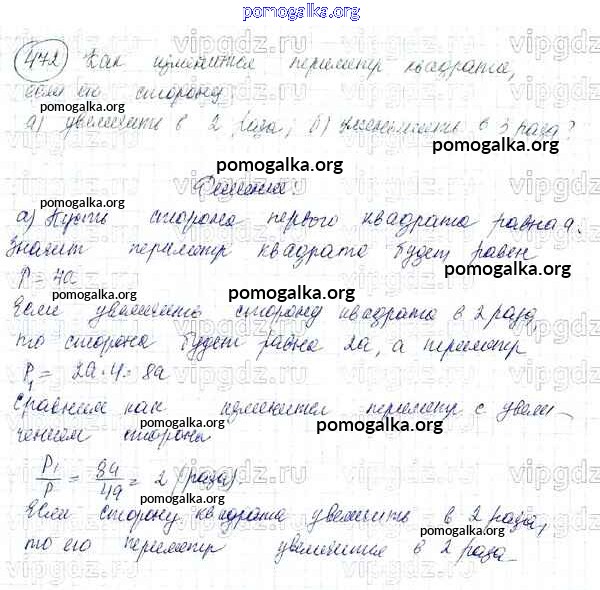 pomogalka.org
472 Как изменится периметр квадрата,
если его сторону:
pomogalka.org
а) увеличить в 2 раза; б) уменьшить в 3 раза?
pomogalka.org
pomogalka.org
Решение:
а) Пусть сторона первого квадрата равна a.
Значит периметр квадрата будет равен
P = 4a
pomogalka.org
pomogalka.org
Если увеличить сторону квадрата в 2 раза,
то сторона будет равна 2a, а периметр
P₁ = 2a·4 = 8a
Сравним как изменится периметр с увели-
чением стороны
pomogalka.org
pomogalka.org
P₁/P = 8a/4a = 2 (раза).
pomogalka.org
Если сторону квадрата увеличить в 2 раза,
pomogalka.org
то его периметр увеличится в 2 раза
vipgdz.ru